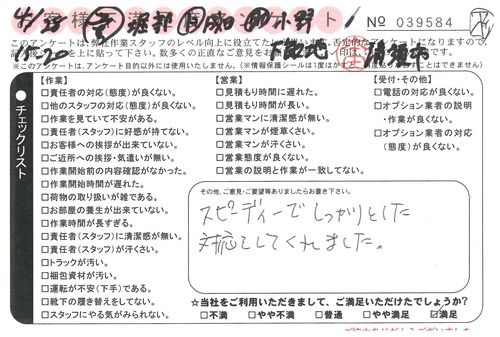 4/25
№ 039584
このアンケートは弊社作業スタッフのレベル向上に役立てたい
15:30
【作業】
□責任者の対応(態度)が良くない。
□他のスタッフの対応(態度)が良くない。
□作業を見ていて不安がある。
□責任者(スタッフ)に好感が持てない。
□お客様への挨拶が出来ていない。
□ご近所への挨拶・気遣いが無い。
□作業開始前の内容確認がなかった。
□作業開始時間が遅れた。
□荷物の取り扱いが雑である。
□お部屋の養生が出来ていない。
□作業時間が長すぎる。
□責任者(スタッフ)に清潔感が無い。
□責任者(スタッフ)が汗くさい。
□トラックが汚い。
□梱包資材が汚い。
□運転が不安(下手)である。
□靴下の履き替えをしてない。
□スタッフにやる気がみられない。
チェックリスト
【営業】
□見積もり時間に遅れた。
□見積もり時間が長い。
□営業マンに清潔感が無い。
□営業マンが煙草くさい。
□営業マンが汗くさい。
□営業態度が良くない。
□営業の説明と作業が一致してない。
【受付・その他】
□電話の対応が良くない。
□オプション業者の説明
・作業が良くない。
□オプション業者の対応
(態度)が良くない。
その他、ご意見・ご要望等ありましたらお書き下さい。
スピーディーでしっかりとした
対応をしてくれました。
☆当社をご利用いただきまして、ご満足いただけたでしょうか?
□不満 □やや不満 □普通 □やや満足 ☑満足